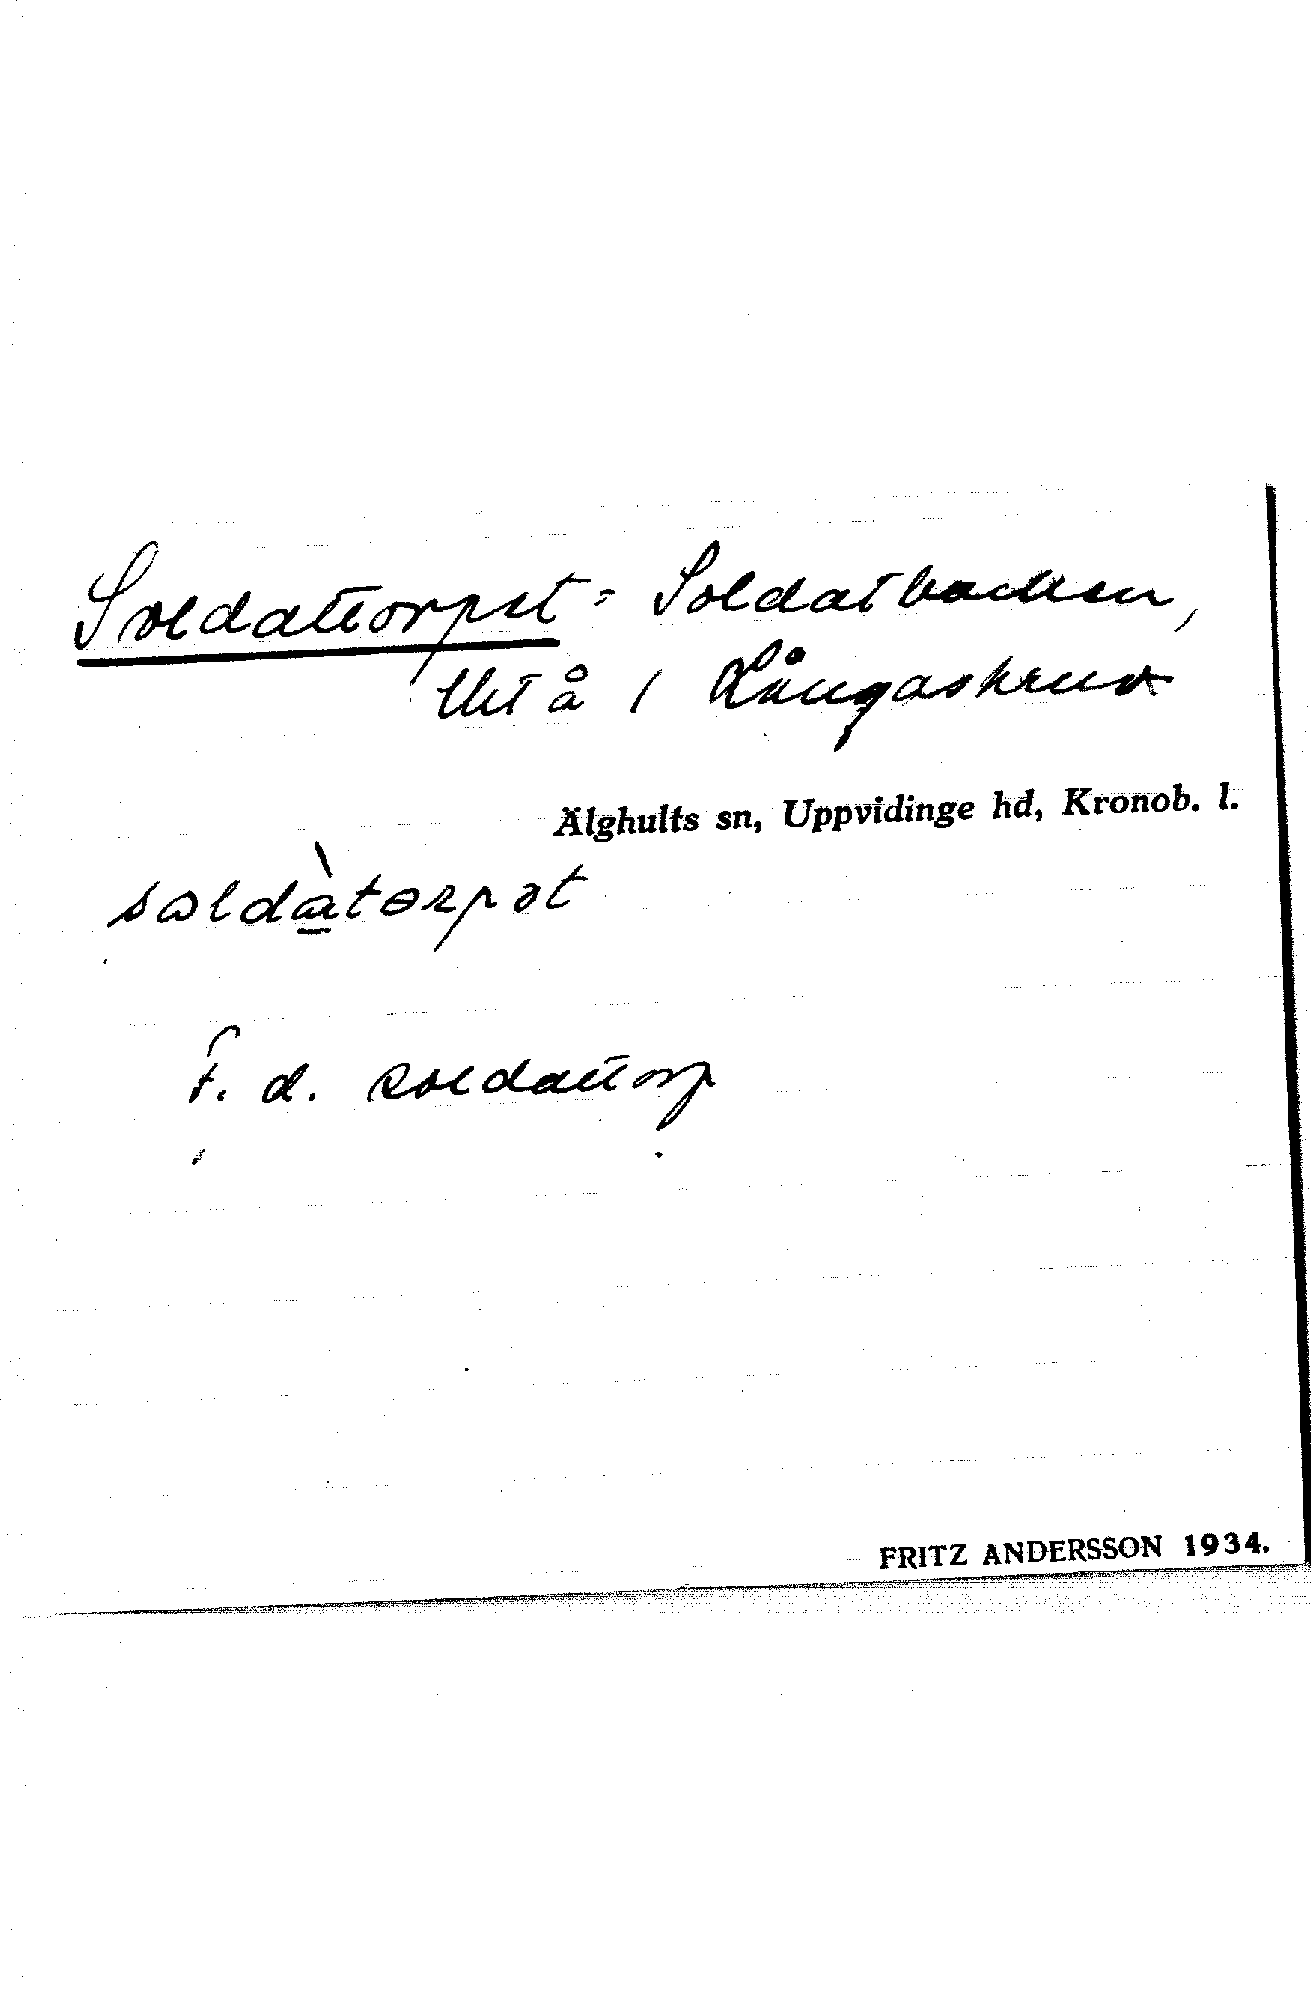 Soldattorpet = Soldatbacken,
litt å / Långaskruv
Älghults sn, Uppvidinge hd, Kronob. l.
soldàtorpət
F. d. soldattorp
FRITZ ANDERSSON 1934.